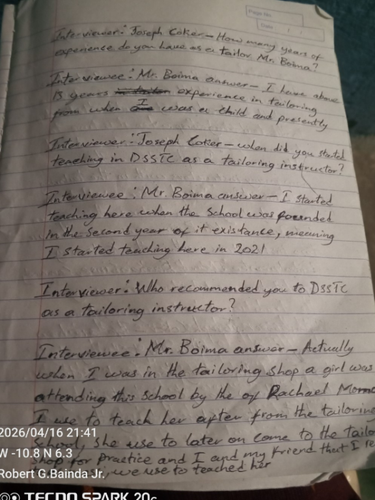 Interviewer: Joseph Coker – How many years of
experience do you have as a tailor Mr. Boima?
Interviewee: Mr. Boima answer – I have above
15 years experience in tailoring
from when I was a child and presently
Interviewer: Joseph Coker – when did you started
teaching in DSSTC as a tailoring instructor?
Interviewee: Mr. Boima answer – I started
teaching here when the School was founded
in the second year of it existance, meaning
I started teaching here in 2021
Interviewer: Who recommended you to DSSTC
as a tailoring instructor?
Interviewee: Mr. Boima answer – Actually
when I was in the tailoring shop a girl was
attending this school by the of Rachael
I use to teach her after from the tailoring
School, she use to later on come to the
shop for practice and I and my friend that I
we use to teached her
2026/04/16 21:41
W -10.8 N 6.3
Robert G.Bainda Jr.
TECNO SPARK 20c